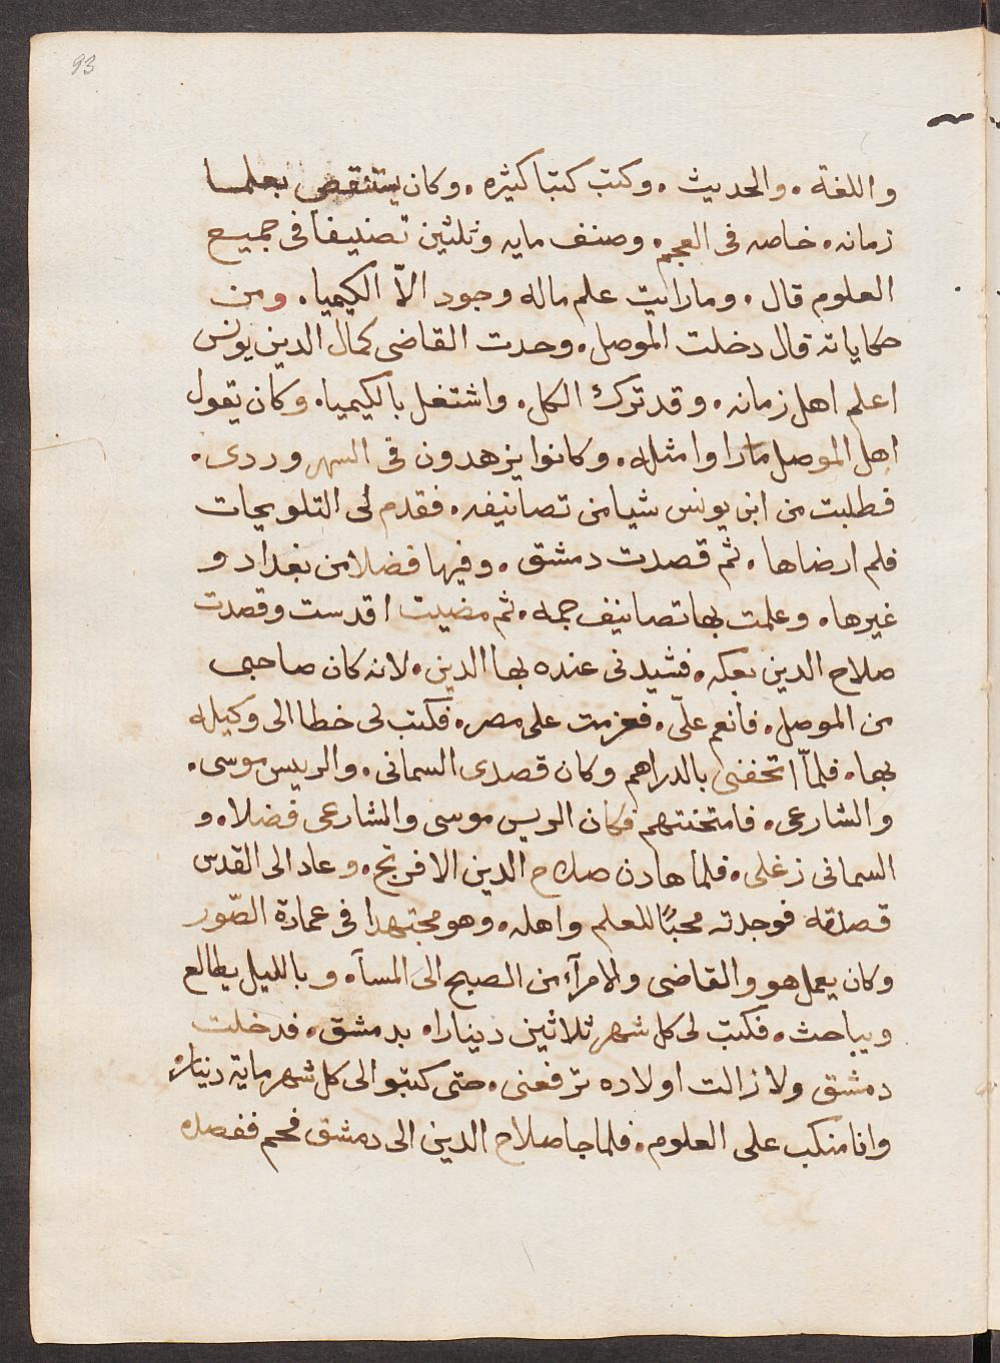 93
واللغة . والحديث . وكتب كتبا كثيره . وكان يتنقص بعلما
زمانه . خاصه فى العجم . وصنف مايه وثلثين تصنيفا فى جميع
العلوم قال . وما رايت علم ماله وجود الاّ الكيميا . ومن
حكاياته قال دخلت الموصل . وحدت القاضى كمال الدين يونس
اعلم اهل زمانه . وقد ترك الكل . واشتغل بالكيميا . وكان تقول
اهل الموصل ما راوا مثله . وكانوا يزهدون فى السهروردى .
فطلبت من ابن يونس شيا من تصانيفه . فقدم لى التلويحات
فلم ارضاها . ثم قصدت دمشق . وفيها فضلا من بغداد و
غيرها . وعلمت بها تصانيف جمه . ثم مضيت اقدست وقصدت
صلاح الدين بعكه . فشيدنى عنده بها الدين . لانه كان صاحبى
من الموصل . فانعم علىّ . فعزمت على مصر . فكتب لى خطا الى وكيله
بها . فلمّا اتحفنى بالدراهم وكان قصدى السمانى . والرييس موسى .
والشارعى . فامتحنتهم فكان الريس موسى والشارعى فضلا . و
السمانى زغلى . فلما هادن صلاح الدين الافرنج . وعاد الى القدس
قصدته فوجدته محبًا للعلم واهله . وهو مجتهدا فى عمارة الصّور
وكان يعمل هو والقاضى والامرآء من الصبح الى المسآ . وبالليل يطالع
ويباحث . فكتب لى كل شهر ثلاثين دينارا . بدمشق . فدخلت
دمشق ولا زالت اولاده ترفعنى . حتى كتبو الى كل شهر ماية دينار .
وانا منكب على العلوم . فلما جا صلاح الدين الى دمشق فحم ففصده